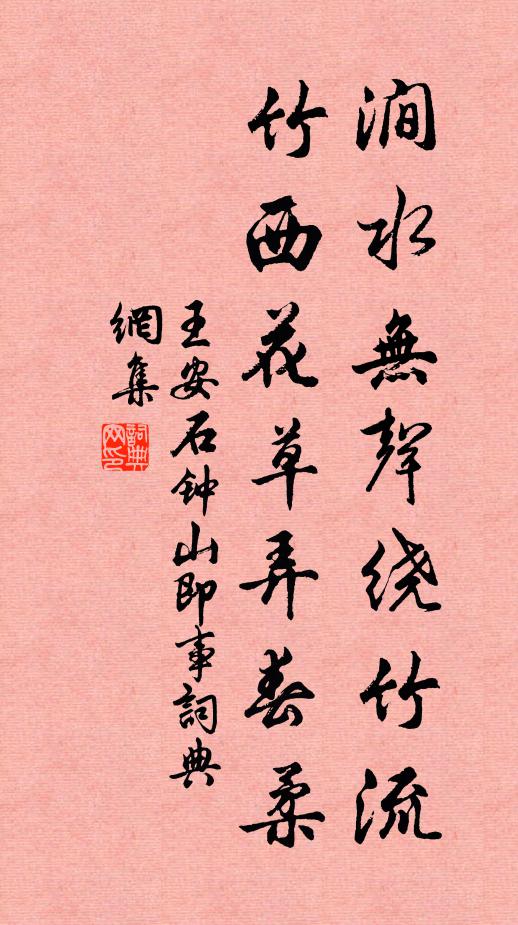 澗水無聲绕竹流
竹西花草弄春柔
王安石钟山即事詞典
網集
詞典
网印